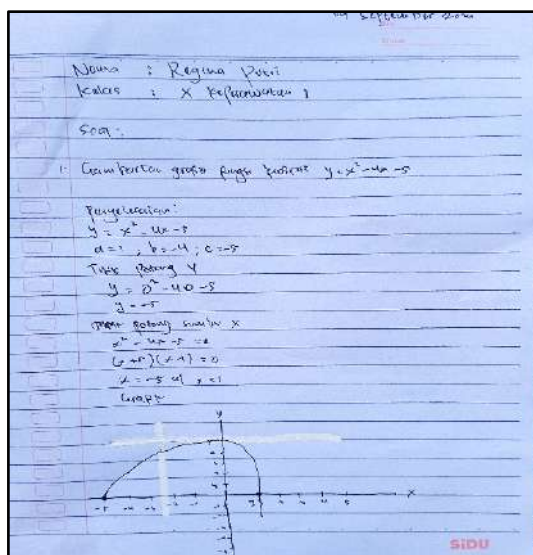 Nama : Regina Putri
Kelas : X Keperawatan 1
Soal :
1. Gambarkan grafik fungsi kuadrat y = x² - 4x - 5
Penyelesaian :
y = x² - 4x - 5
a = 1 , b = -4 ; c = -5
Titik potong Y
y = 0² - 4.0 - 5
y = -5
potong sumbu X
x² - 4x - 5 = 0
x = -5 x = 1
Grafik
y
x
-5
SiDU